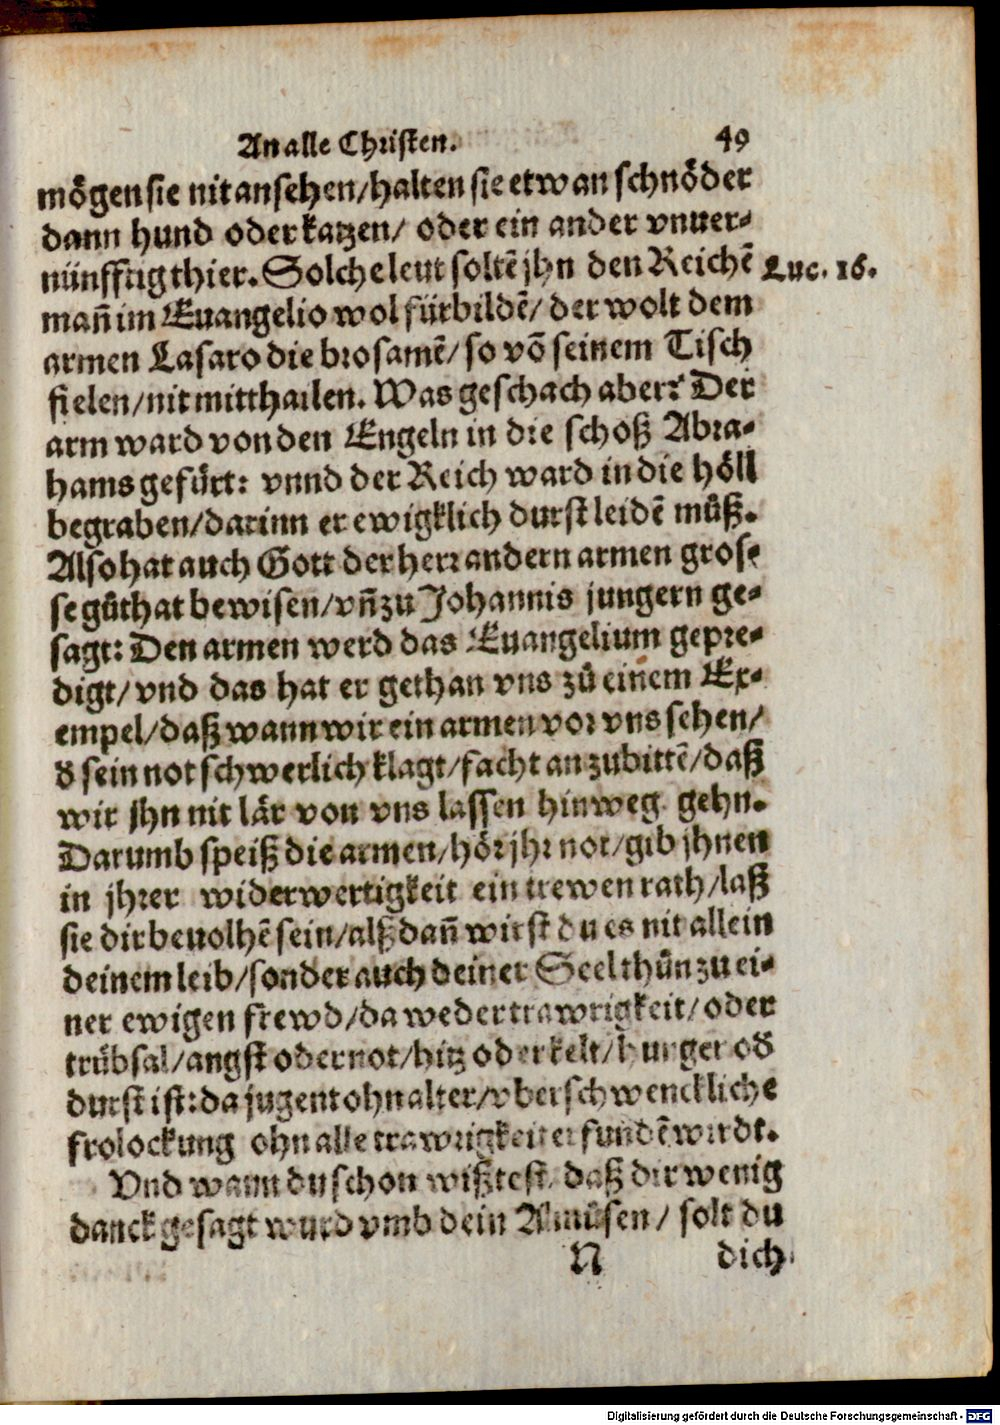 An alle Christen. 49
mögen sie nit ansehen/halten sie etwan schnöder
dann hund oder katzen/ oder ein ander vnuer-
nünfftig thier. Solche leut soltē jhn den Reichē Luc. 16.
mañ im Euangelio wol fürbildē/ der wolt dem
armen Lasaro die brosamē/ so vō seinem Tisch
fielen/nit mitthailen. Was geschach aber? Der
arm ward von den Engeln in die schoß Abra-
hams gefürt: vnnd der Reich ward in die höll
begraben/darinn er ewigklich durst leidē můß.
Also hat auch Gott der herr andern armen gros-
se gůthat bewisen/vñ zu Johannis jungern ge-
sagt: Den armen werd das Euangelium gepre-
digt/ vnd das hat er gethan vns zů einem Ex-
empel/daß wann wir ein armen vor vns sehen/
d̕ sein not schwerlich klagt/facht an zubittē/daß
wir jhn nit lär von vns lassen hinweg gehn.
Darumb speiß die armen/hör jhr not/gib jhnen
in jhrer widerwertigkeit ein trewen rath/laß
sie dir beuolhē sein/alß dañ wirst du es nit allein
deinem leib/sonder auch deiner Seel thůn zu ei-
ner ewigen frewd/da weder trawrigkeit/ oder
trübsal/angst oder not/hitz oder kelt/hunger od̕
durst ist: da jugent ohn alter/vberschwenckliche
frolockung ohn alle trawrigkeit erfundē wirdt.
Vnd wann du schon wißtest/ daß dir wenig
danck gesagt wurd vmb dein Almůsen/ solt du
N dich
Digitalisierung gefördert durch die Deutsche Forschungsgemeinschaft - DFG